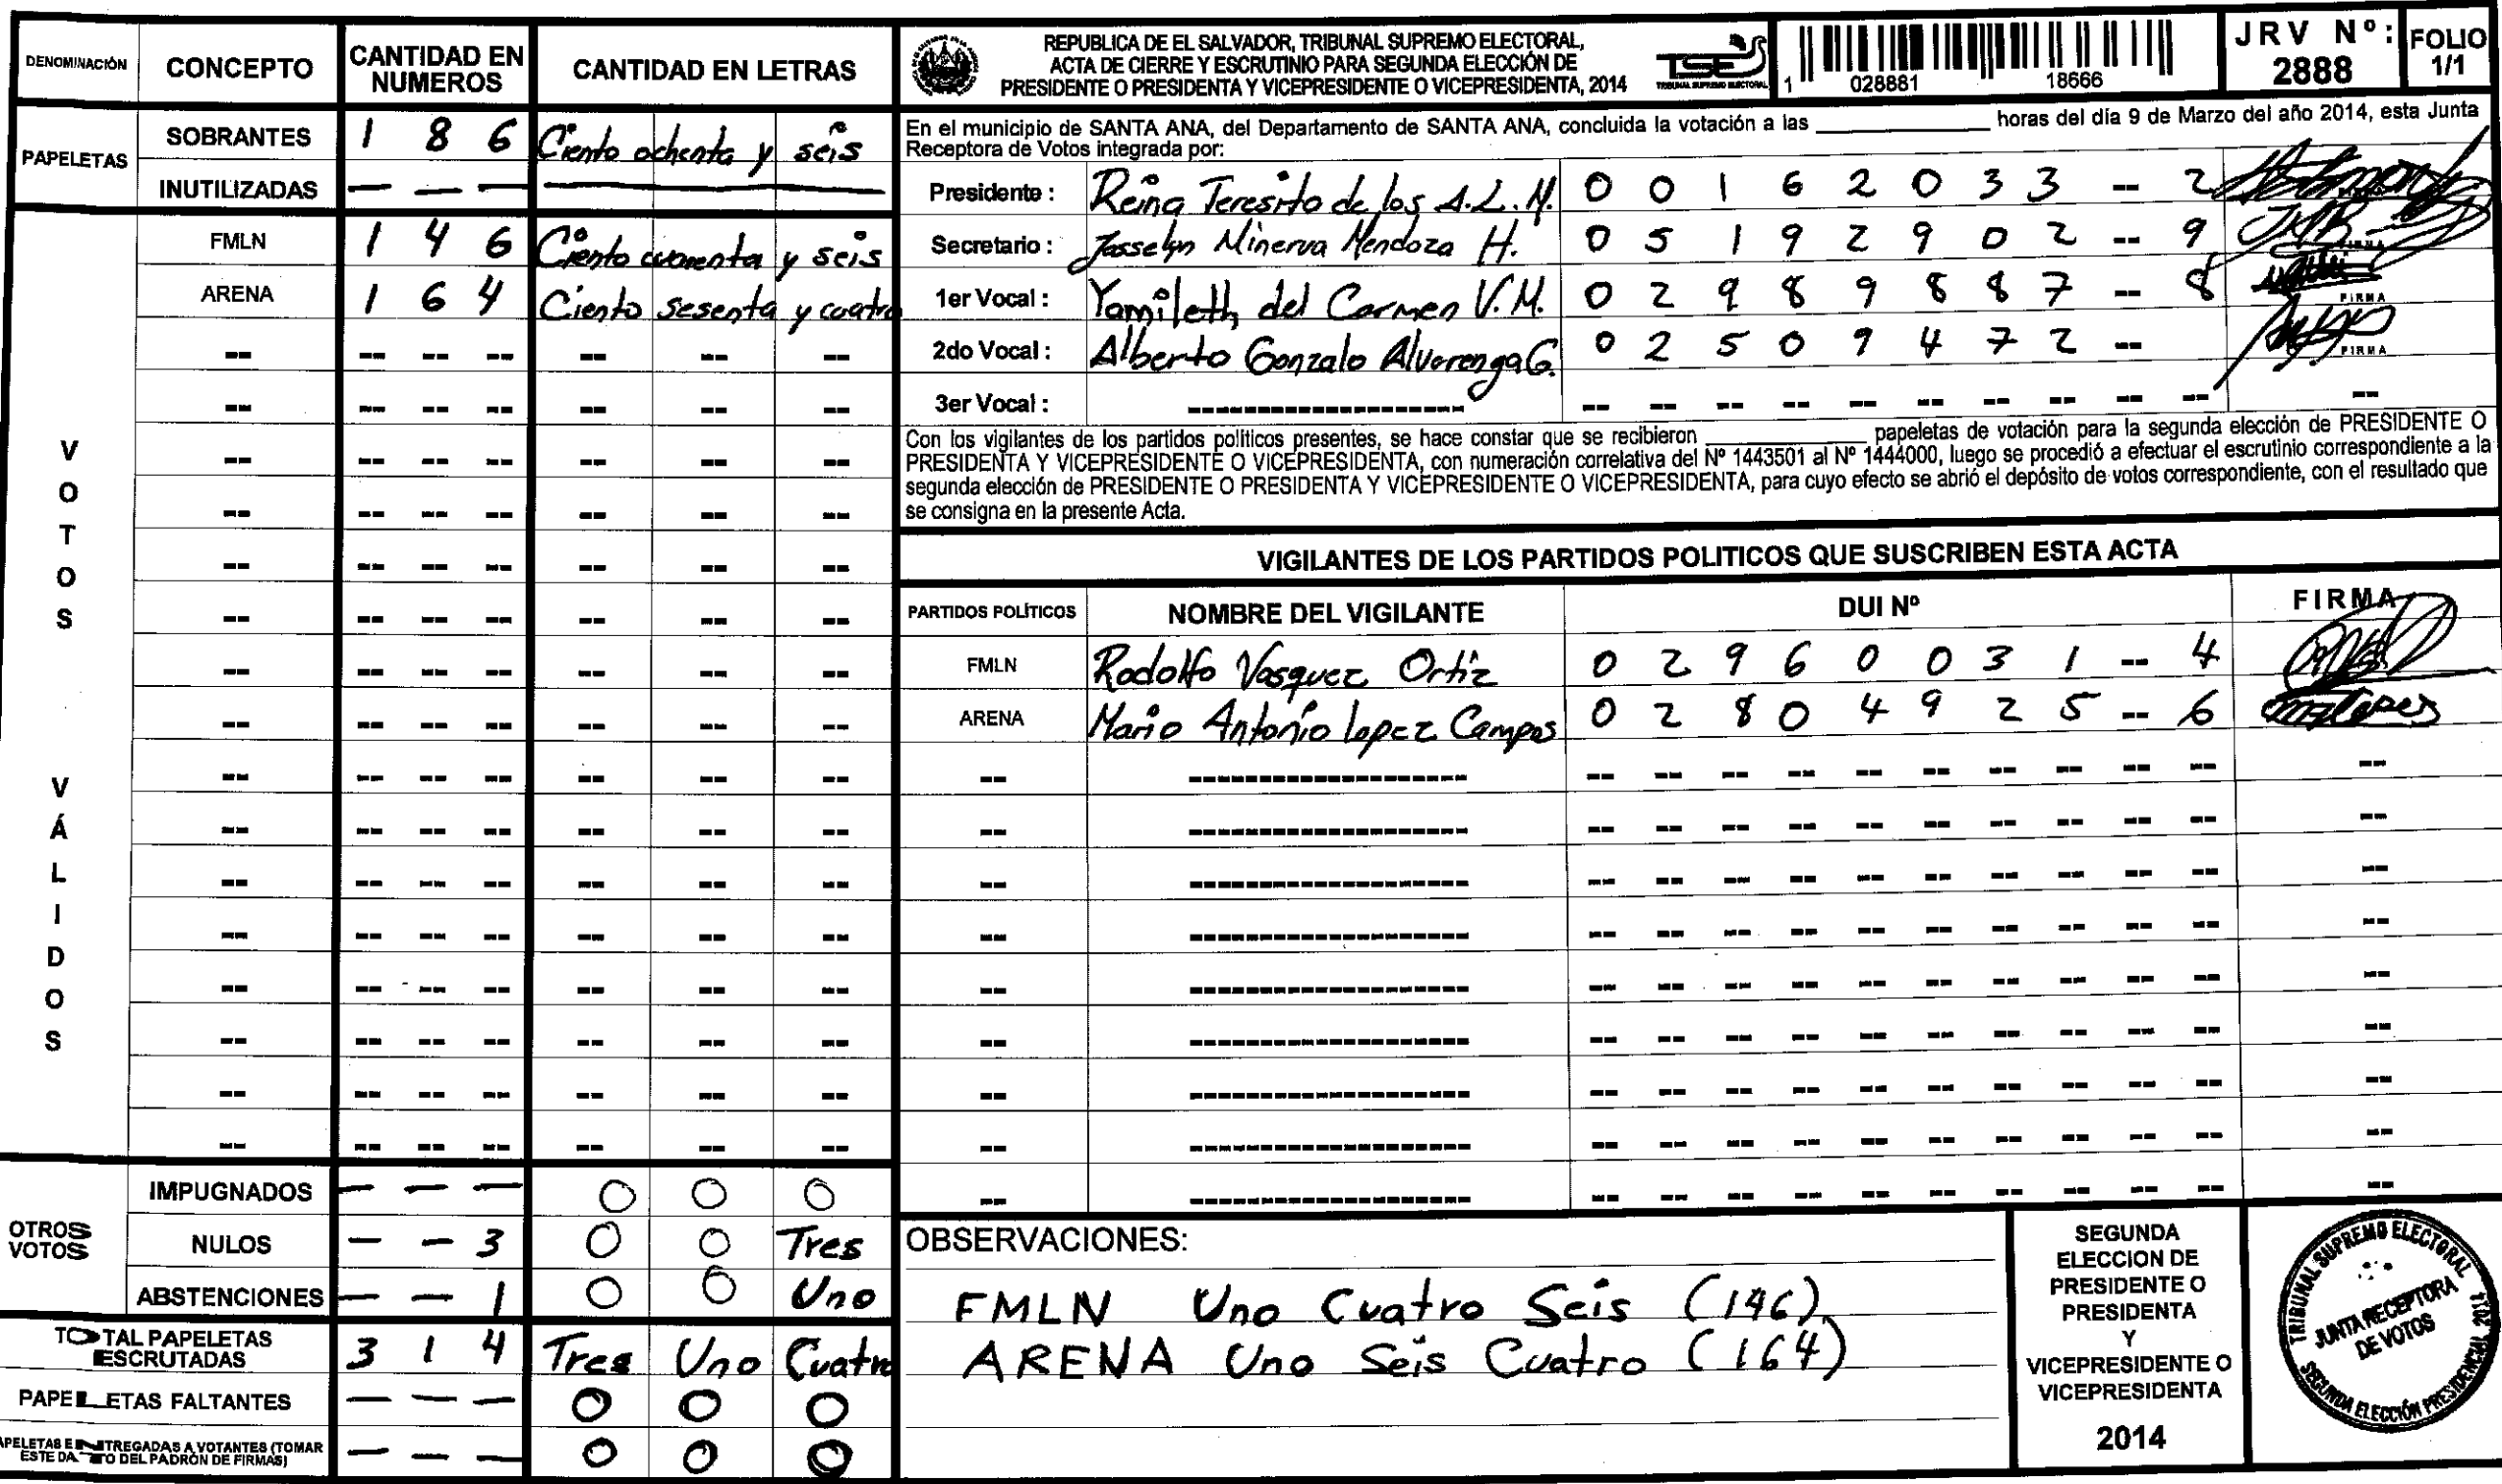 DENOMINACIÓN CONCEPTO CANTIDAD EN NUMEROS CANTIDAD EN LETRAS
PAPELETAS
SOBRANTES 1 8 6 Ciento ochenta y seis
INUTILIZADAS — — —
VOTOS VÁLIDOS
FMLN 1 4 6 Ciento cuarenta y seis
ARENA 1 6 4 Ciento sesenta y cuatro
OTROS VOTOS
IMPUGNADOS — — — O O O
NULOS — — 3 O O Tres
ABSTENCIONES — — 1 O O Uno
TOTAL PAPELETAS ESCRUTADAS 3 1 4 Tres Uno Cuatro
PAPELETAS FALTANTES — — — O O O
PAPELETAS ENTREGADAS A VOTANTES (TOMAR ESTE DATO DEL PADRÓN DE FIRMAS) — — — O O O
REPUBLICA DE EL SALVADOR, TRIBUNAL SUPREMO ELECTORAL,
ACTA DE CIERRE Y ESCRUTINIO PARA SEGUNDA ELECCIÓN DE
PRESIDENTE O PRESIDENTA Y VICEPRESIDENTE O VICEPRESIDENTA, 2014
TSE
TRIBUNAL SUPREMO ELECTORAL
1 028881 18666
JRV Nº: 2888
FOLIO 1/1
En el municipio de SANTA ANA, del Departamento de SANTA ANA, concluida la votación a las ________ horas del día 9 de Marzo del año 2014, esta Junta
Receptora de Votos integrada por:
Presidente : Reina Teresita de los A.L.M. 0 0 1 6 2 0 3 3 -- 2
Secretario : Josselyn Minerva Mendoza H. 0 5 1 9 2 9 0 2 -- 9
1er Vocal : Yamileth del Carmen V.M. 0 2 9 8 9 8 8 7 -- 8 FIRMA
2do Vocal : Alberto Gonzalo Alvarenga G. 0 2 5 0 9 4 7 2 -- FIRMA
3er Vocal :
Con los vigilantes de los partidos políticos presentes, se hace constar que se recibieron ________ papeletas de votación para la segunda elección de PRESIDENTE O
PRESIDENTA Y VICEPRESIDENTE O VICEPRESIDENTA, con numeración correlativa del Nº 1443501 al Nº 1444000, luego se procedió a efectuar el escrutinio correspondiente a la
segunda elección de PRESIDENTE O PRESIDENTA Y VICEPRESIDENTE O VICEPRESIDENTA, para cuyo efecto se abrió el depósito de votos correspondiente, con el resultado que
se consigna en la presente Acta.
VIGILANTES DE LOS PARTIDOS POLITICOS QUE SUSCRIBEN ESTA ACTA
PARTIDOS POLÍTICOS NOMBRE DEL VIGILANTE DUI Nº FIRMA
FMLN Rodolfo Vasquez Ortiz 0 2 9 6 0 0 3 1 -- 4
ARENA Mario Antonio Lopez Campos 0 2 8 0 4 9 2 5 -- 6
OBSERVACIONES:
FMLN Uno Cuatro Seis (146)
ARENA Uno Seis Cuatro (164)
SEGUNDA
ELECCION DE
PRESIDENTE O
PRESIDENTA
Y
VICEPRESIDENTE O
VICEPRESIDENTA
2014
TRIBUNAL SUPREMO ELECTORAL
JUNTA RECEPTORA
DE VOTOS
SEGUNDA ELECCIÓN PRESIDENCIAL 2014